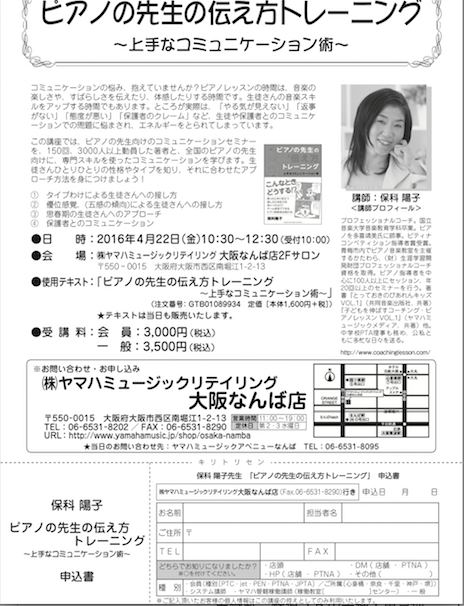 ピアノの先生の伝え方トレーニング
～上手なコミュニケーション術～
コミュニケーションの悩み、抱えていませんか？ピアノレッスンの時間は、音楽の
楽しさや、すばらしさを伝えたり、体感したりする時間です。生徒さんの音楽スキ
ルをアップする時間でもあります。ところが実際は、「やる気が見えない」「返事
がない」「態度が悪い」「保護者のクレーム」など、生徒や保護者とのコミュニケー
ションでの問題に悩まされ、エネルギーをとられてしまっています。
この講座では、ピアノの先生向けのコミュニケーションセミナー
を、150回、3000人以上動員した著者と、全国のピアノの先生
向けに、専門スキルを使ったコミュニケーションを学びます。生
徒さんひとりひとりの性格やタイプを知り、それに合わせたアプ
ローチ方法を身につけましょう！
① タイプわけによる生徒さんへの接し方
② 優位感覚、（五感の傾向）による生徒さんへの接し方
③ 思春期の生徒さんへのアプローチ
④ 保護者とのコミュニケーション
ピアノの先生の
トレーニング
こんなとき
どうする!?
講師：保科 陽子
＜講師プロフィール＞
プロフェッショナルコーチ。国立
音楽大学音楽教育学科卒業。ピア
ノを多喜靖美氏に師事。ピティナ
コンペティション指導者賞受賞。
青梅市内でピアノ教室を主宰
するかたわら、（財）生涯学習開
発財団プロフェッショナルコーチ
資格を取得。ピアノ指導者を中
心に100人以上にセッション、年
20回以上のセミナーを行う。著
書『とっておきのぴあれんキッズ
VOL.1』（共同音楽出版社、共著）
『子どもを伸ばすコーチング・ピ
アノレッスン VOL.1』（ヤマハミュ
ージックメディア、共著）他。
中学校PTA理事も務め、公私と
もに多忙な日々を送る。
http://www.coachinglesson.com/
●日　時：2016年4月22日(金)10:30～12:30(受付10:00)
●会　場：㈱ヤマハミュージックリテイリング 大阪なんば店2Fサロン
〒550-0015　大阪府大阪市西区南堀江1-2-13
●使用テキスト：「ピアノの先生の伝え方トレーニング
～上手なコミュニケーション術～」
（注文番号：GTB01089934　定価［本体1,600円＋税］）
★テキストは当日も販売いたします。
●受 講 料：会　員：3,000円(税込)
一　般：3,500円(税込)
※お問い合わせ・お申し込み
㈱ヤマハミュージックリテイリング
大阪なんば店
〒550-0015　大阪府大阪市西区南堀江1-2-13
営業時間 11:00～19:00
TEL：06-6531-8202 ／ FAX：06-6531-8290
定休日 第2・3水曜日
URL：http://www.yamahamusic.jp/shop/osaka-namba
★当日のお問い合せ先：ヤマハミュージックアベニューなんば　TEL：06-6531-8095
ORANGE
STREET
キリトリセン
保科 陽子
ピアノの先生の伝え方
トレーニング
～上手なコミュニケーション術～
申込書
保科 陽子先生 「ピアノの先生の伝え方トレーニング」 申込書
㈱ヤマハミュージックリテイリング大阪なんば店(Fax.06-6531-8290)行き
申込日　月　日
お名前
担当者名
ご住所
〒
TEL
FAX
どちらでお知りになりましたか？
※○を付けてください。
・店頭　・DM（店舗・PTNA）
・HP（店舗・PTNA）　・その他（　　）
種 別
・システム講師
）　・一般
※ご記入頂いたお客様の個人情報はこの講座の控えとしてのみ利用いたします。